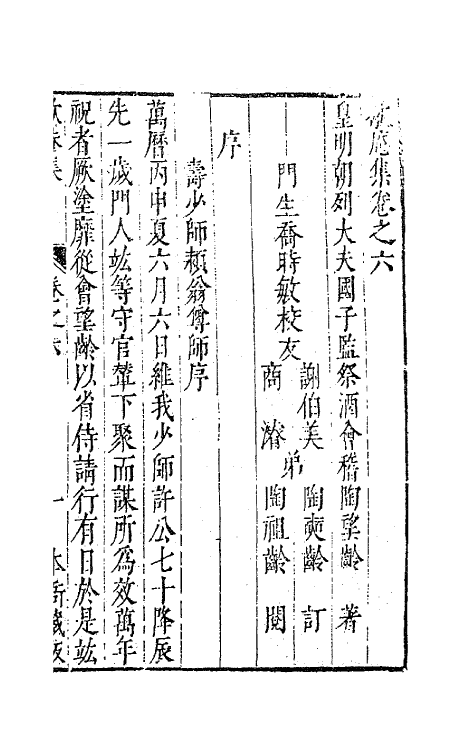 歇菴集卷之六
皇明朝列大夫國子監祭酒會稽陶望齡 著
門生喬時敏校友
謝伯美 陶奭齡 訂
商濬 弟 陶祖齡 閱
序
壽少師頴翁尊師序
萬曆丙申夏六月六日維我少師許公七十降辰
先一歲門人竑等守官輦下聚而謀所為效萬年
祝者厥塗靡從會望齡以省侍請行有日於是竑
歇菴集 卷之六 一 本衙藏板